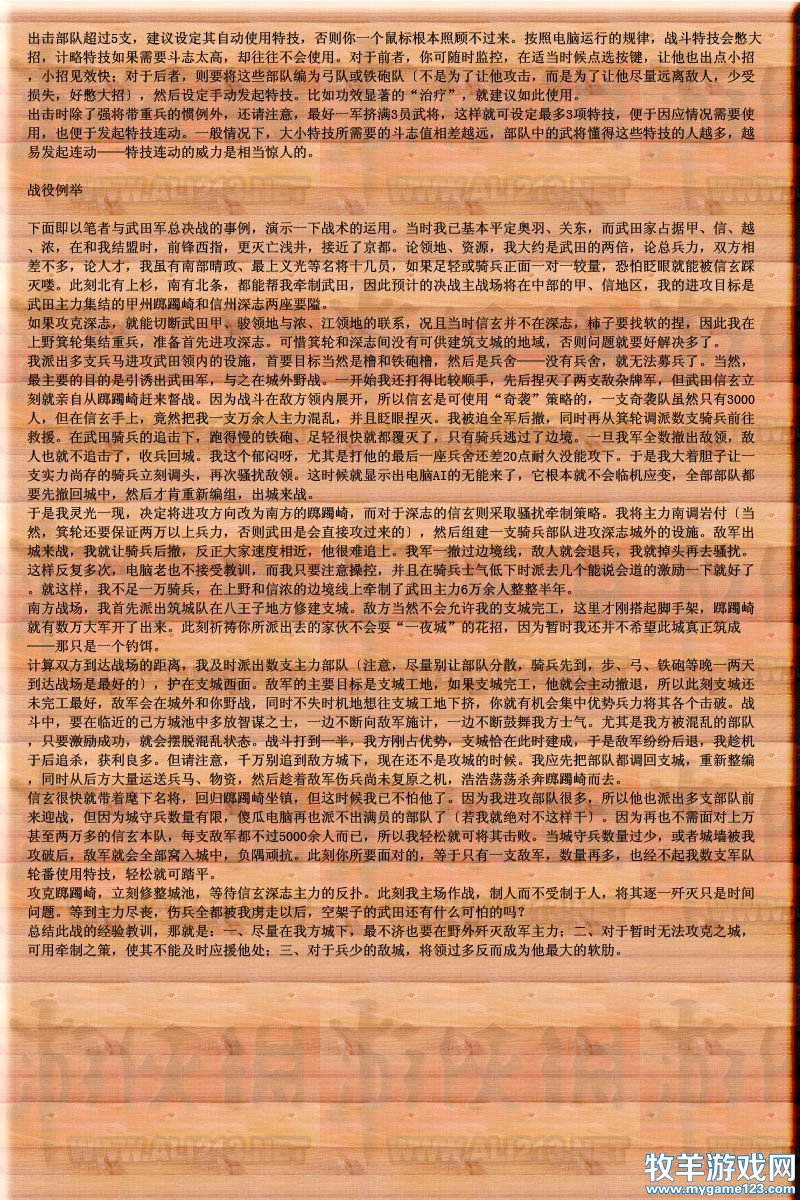 出击部队超过5支，建议设定其自动使用特技，否则你一个鼠标根本照顾不过来。按照电脑运行的规律，战斗特技会憋大
招，计略特技如果需要斗志太高，却往往不会使用。对于前者，你可随时监控，在适当时候点选按键，让他也出点小招
，小招见效快；对于后者，则要将这些部队编为弓队或铁砲队〔不是为了让他攻击，而是为了让他尽量远离敌人，少受
损失，好憋大招〕，然后设定手动发起特技。比如功效显著的“治疗”，就建议如此使用。
出击时除了强将带重兵的惯例外，还请注意，最好一军挤满3员武将，这样就可设定最多3项特技，便于因应情况需要使
用，也便于发起特技连动。一般情况下，大小特技所需要的斗志值相差越远，部队中的武将懂得这些特技的人越多，越
易发起连动——特技连动的威力是相当惊人的。
战役例举
下面即以笔者与武田军总决战的事例，演示一下战术的运用。当时我已基本平定奥羽、关东，而武田家占据甲、信、越
、浓，在和我结盟时，前锋西指，更灭亡浅井，接近了京都。论领地、资源，我大约是武田的两倍，论总兵力，双方相
差不多，论人才，我虽有南部晴政、最上义光等名将十几员，如果足轻或骑兵正面一对一较量，恐怕眨眼就能被信玄踩
灭喽。此刻北有上杉，南有北条，都能帮我牵制武田，因此预计的决战主战场将在中部的甲、信地区，我的进攻目标是
武田主力集结的甲州踯躅崎和信州深志两座要隘。
如果攻克深志，就能切断武田甲、骏领地与浓、江领地的联系，况且当时信玄并不在深志，柿子要找软的捏，因此我在
上野箕轮集结重兵，准备首先进攻深志。可惜箕轮和深志间没有可供建筑支城的地域，否则问题就要好解决多了。
我派出多支兵马进攻武田领内的设施，首要目标当然是橹和铁砲橹，然后是兵舍——没有兵舍，就无法募兵了。当然，
最主要的目的是引诱出武田军，与之在城外野战。一开始我还打得比较顺手，先后捏灭了两支敌杂牌军，但武田信玄立
刻就亲自从踯躅崎赶来督战。因为战斗在敌方领内展开，所以信玄是可使用“奇袭”策略的，一支奇袭队虽然只有3000
人，但在信玄手上，竟然把我一支万余人主力混乱，并且眨眼捏灭。我被迫全军后撤，同时再从箕轮调派数支骑兵前往
救援。在武田骑兵的追击下，跑得慢的铁砲、足轻很快就都覆灭了，只有骑兵逃过了边境。一旦我军全数撤出敌领，敌
人也就不追击了，收兵回城。我这个郁闷呀，尤其是打他的最后一座兵舍还差20点耐久没能攻下。于是我大着胆子让一
支实力尚存的骑兵立刻调头，再次骚扰敌领。这时候就显示出电脑AI的无能来了，它根本就不会临机应变，全部部队都
要先撤回城中，然后才肯重新编组，出城来战。
于是我灵光一现，决定将进攻方向改为南方的踯躅崎，而对于深志的信玄则采取骚扰牵制策略。我将主力南调岩付〔当
然，箕轮还要保证两万以上兵力，否则武田是会直接攻过来的〕，然后组建一支骑兵部队进攻深志城外的设施。敌军出
城来战，我就让骑兵后撤，反正大家速度相近，他很难追上。我军一撤过边境线，敌人就会退兵，我就掉头再去骚扰。
这样反复多次，电脑老也不接受教训，而我只要注意操控，并且在骑兵士气低下时派去几个能说会道的激励一下就好了
。就这样，我不足一万骑兵，在上野和信浓的边境线上牵制了武田主力6万余人整整半年。
南方战场，我首先派出筑城队在八王子地方修建支城。敌方当然不会允许我的支城完工，这里才刚搭起脚手架，踯躅崎
就有数万大军开了出来。此刻祈祷你所派出去的家伙不会耍“一夜城”的花招，因为暂时我还并不希望此城真正筑成
——那只是一个钓饵。
计算双方到达战场的距离，我及时派出数支主力部队〔注意，尽量别让部队分散，骑兵先到，步、弓、铁砲等晚一两天
到达战场是最好的〕，护在支城西面。敌军的主要目标是支城工地，如果支城完工，他就会主动撤退，所以此刻支城还
未完工最好，敌军会在城外和你野战，同时不失时机地想往支城工地下挤，你就有机会集中优势兵力将其各个击破。战
斗中，要在临近的己方城池中多放智谋之士，一边不断向敌军施计，一边不断鼓舞我方士气。尤其是我方被混乱的部队
，只要激励成功，就会摆脱混乱状态。战斗打到一半，我方刚占优势，支城恰在此时建成，于是敌军纷纷后退，我趁机
于后追杀，获利良多。但请注意，千万别追到敌方城下，现在还不是攻城的时候。我应先把部队都调回支城，重新整编
，同时从后方大量运送兵马、物资，然后趁着敌军伤兵尚未复原之机，浩浩荡荡杀奔踯躅崎而去。
信玄很快就带着麾下名将，回归踯躅崎坐镇，但这时候我已不怕他了。因为我进攻部队很多，所以他也派出多支部队前
来迎战，但因为城守兵数量有限，傻瓜电脑再也派不出满员的部队了〔若我就绝对不这样干〕。因为再也不需面对上万
甚至两万多的信玄本队，每支敌军都不过5000余人而已，所以我轻松就可将其击败。当城守兵数量过少，或者城墙被我
攻破后，敌军就会全部窝入城中，负隅顽抗。此刻你所要面对的，等于只有一支敌军，数量再多，也经不起我数支军队
轮番使用特技，轻松就可踏平。
攻克踯躅崎，立刻修整城池，等待信玄深志主力的反扑。此刻我主场作战，制人而不受制于人，将其逐一歼灭只是时间
问题。等到主力尽丧，伤兵全都被我虏走以后，空架子的武田还有什么可怕的吗？
总结此战的经验教训，那就是：一、尽量在我方城下，最不济也要在野外歼灭敌军主力；二、对于暂时无法攻克之城，
可用牵制之策，使其不能及时应援他处；三、对于兵少的敌城，将领过多反而成为他最大的软肋。
游侠网
WWW.ALI213.NET
牧羊游戏网
www.mygame123.com